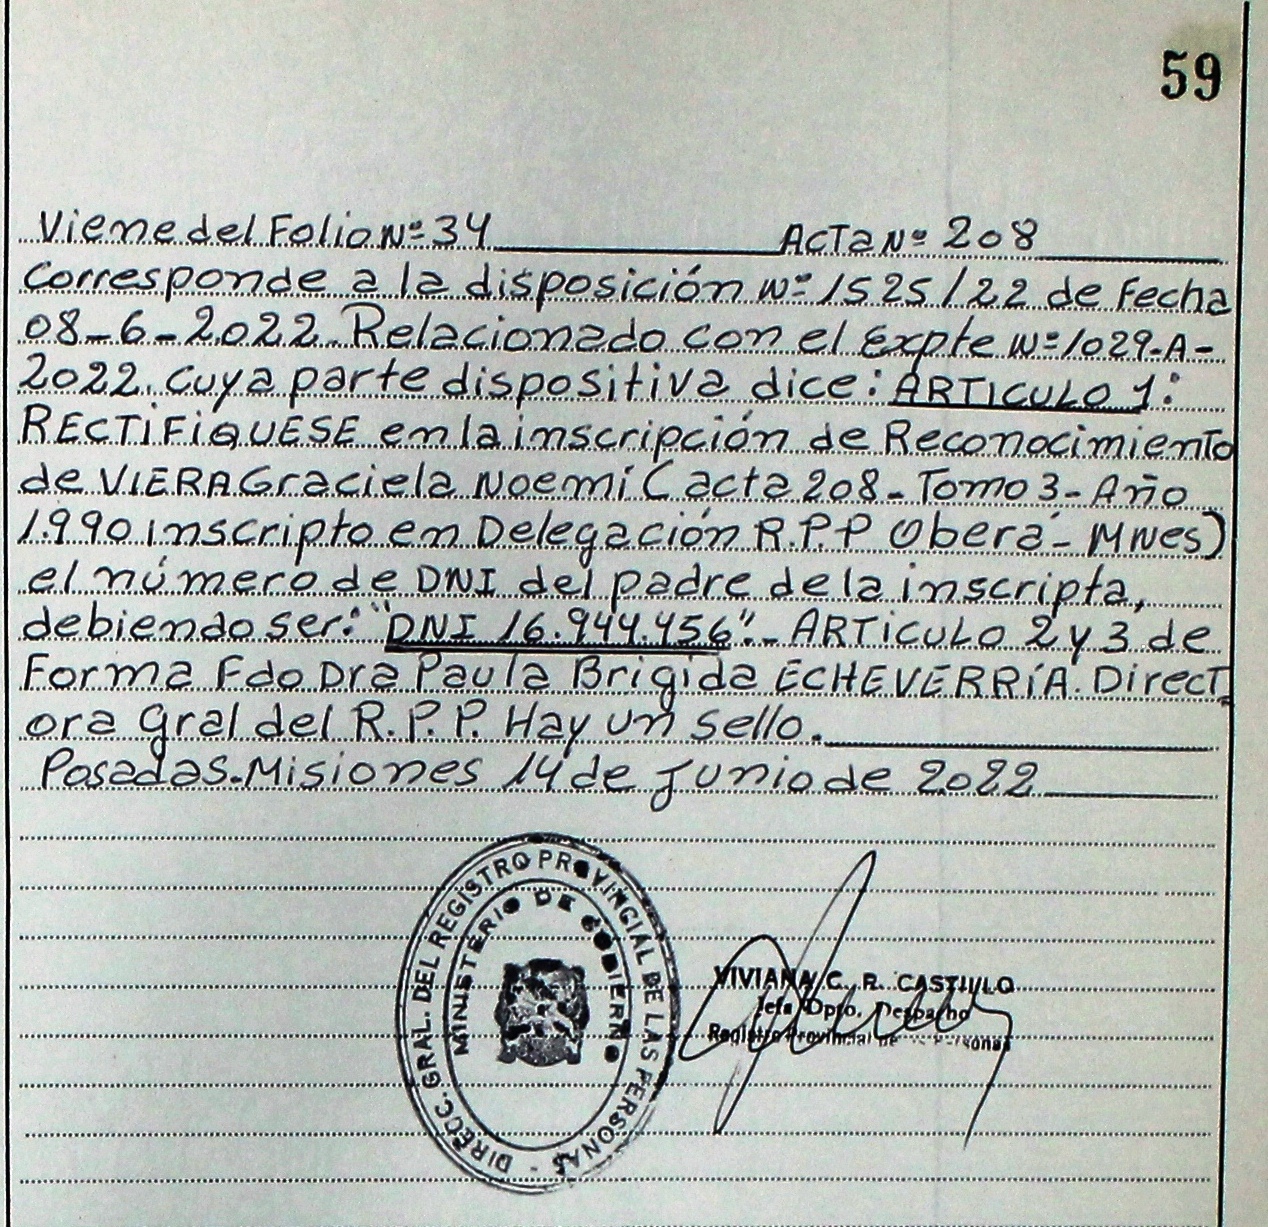 59
Viene del Folio Nº 34 Acta Nº 208
Corresponde a la disposición Nº 1525/22 de Fecha
08-6-2022. Relacionado con el Expte Nº 1029-A-
2022. Cuya parte dispositiva dice: ARTICULO 1:
RECTIFIQUESE en la inscripción de Reconocimiento
de VIERA Graciela Noemí ( acta 208 - Tomo 3 - Año
1.990 inscripto en Delegación R.P.P Oberá - Mnes)
el número de DNI del padre de la inscripta,
debiendo ser: "DNI 16.944.456".- ARTICULO 2 y 3 de
Forma Fdo Dra Paula Brigida ECHEVERRÍA. Direct
ora Gral del R.P.P. Hay un sello.
Posadas-Misiones 14 de Junio de 2022
DIRECC. GRAL. DEL REGISTRO PROVINCIAL DE LAS PERSONAS -
MINISTERIO DE GOBIERNO
VIVIANA C. R. CASTILLO
Jefa Dpto. Despacho
Registro Provincial de las Personas